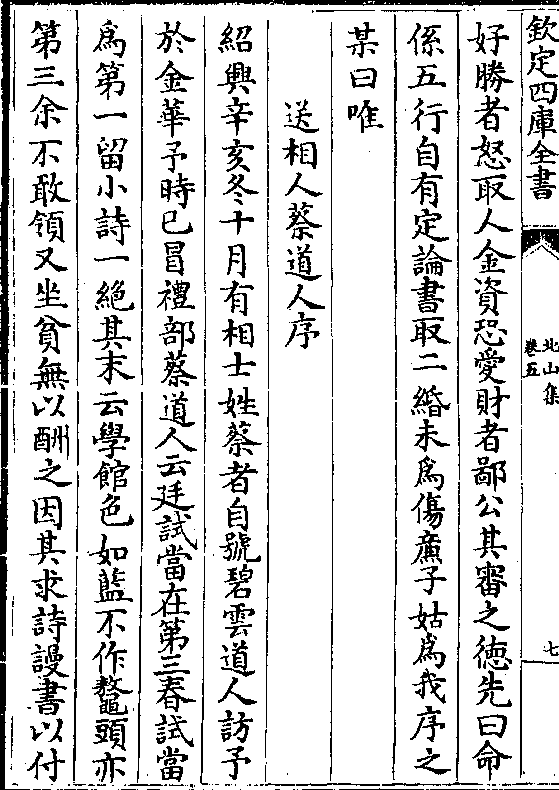 欽定四庫全書
北山集
卷五
七
好勝者怒取人金資恐愛財者鄙公其審之徳先曰命
係五行自有定論書取二緡未為傷亷子姑為我序之
某曰唯
送相人蔡道人序
紹興辛亥冬十月有相士姓蔡者自號碧雲道人訪予
於金華予時已冒禮部蔡道人云廷試當在第三春試當
為第一留小詩一絶其末云學館色如藍不作鼇頭亦
第三余不敢領又坐貧無以酬之因其求詩謾書以付